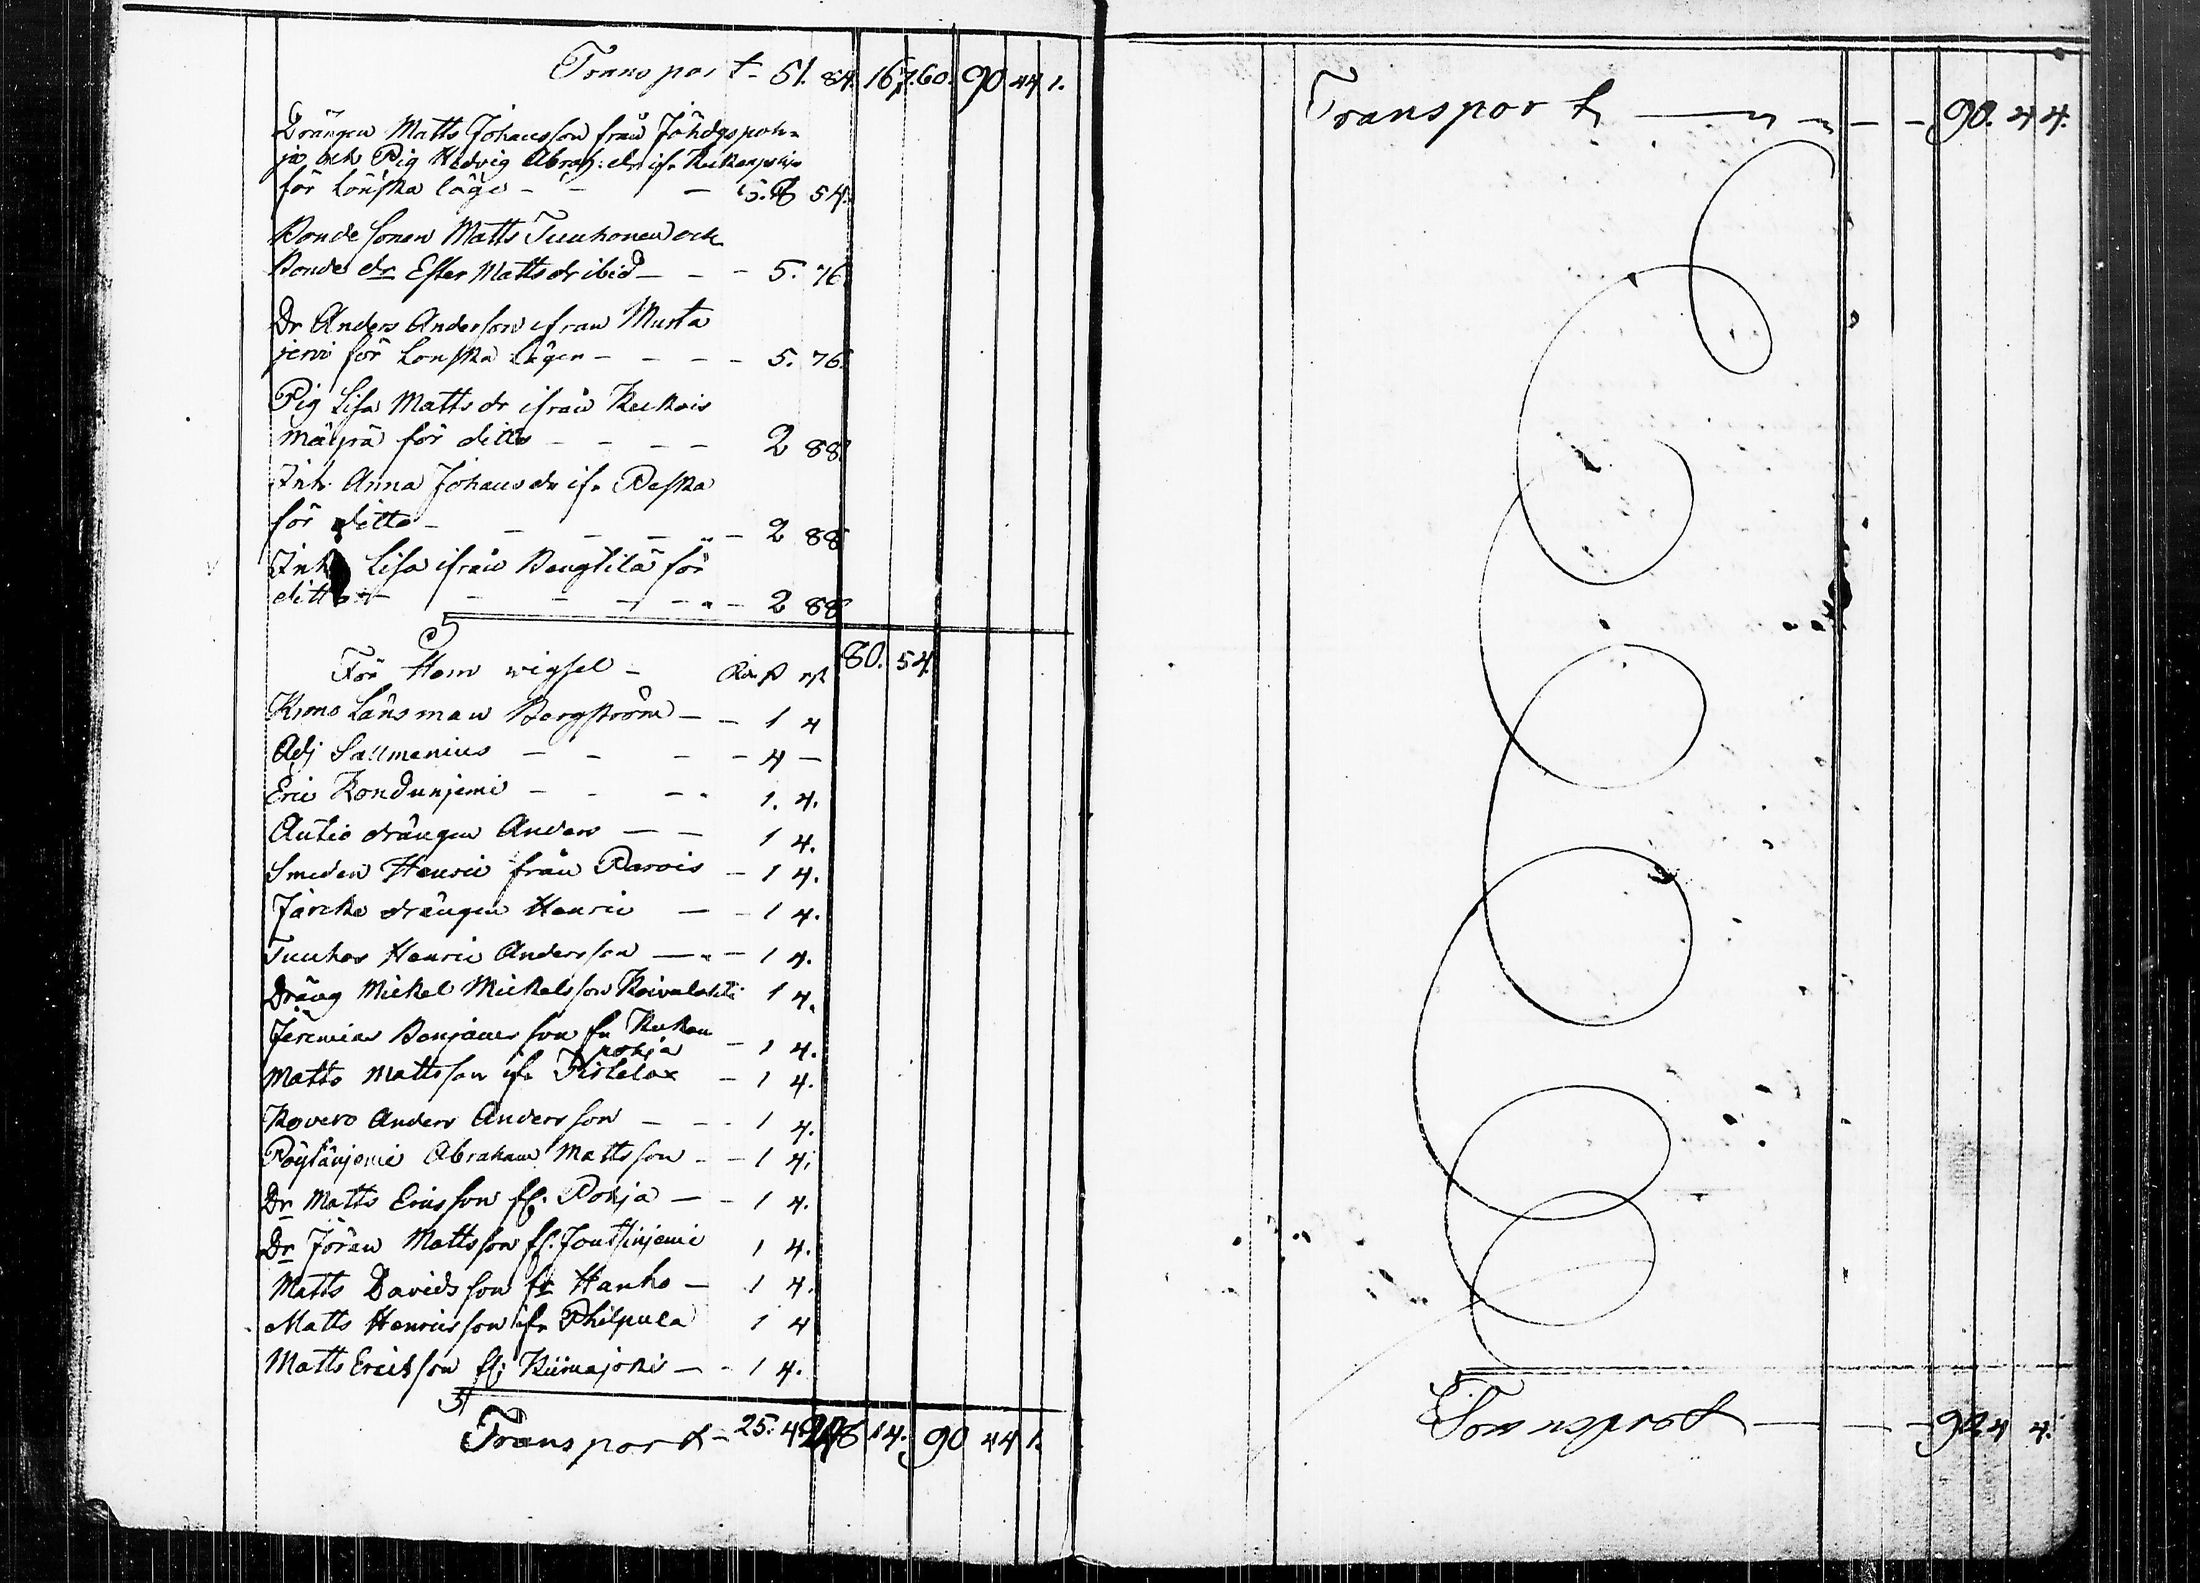 Transport - 51. 84. 167. 60. 90 44 1.
Drängen Matts Johansson från
och Pig Hedvig Abrah: dr ifr
för Lönska läge - - - 5. 54.
Bonde sonen Matts Tuuhonen och
Bonde dr Ester Matts dr ibid - - - 5. 76.
Dr Anders Andersson ifrån Musta
jervi för Lönska lägen - - - - 5. 76.
Pig Lisa Matts dr ifrån Keckois
för ditto - - - - 2 88.
Inh. Anna Johans dr ifr. Paska
för ditto - - - - - 2 88
Inh Lisa ifrån Bengtilä för
ditto - - - - - - 2 88
80. 54.
För Hem wigsel -
Krono Länsman Bergström - - 1 4
Adj Sallmenius - - - - 4 -
Eric Kondunjemi - - - - 1. 4.
Autio drängen Anders - - 1 4.
Smeden Henric från Parvis - 1 4.
Järcke drängen Henric - - 1 4.
Tuuhos Henric Andersson - - - 1 4.
Dräng Mickel Mickelsson Koivulahti 1 4.
Jeremias Benjamsson fr Kukon
pohja - 1 4.
Matts Mattsson ifr Tistelax - 1 4.
Kovero Anders Andersson - - - 1 4.
Pöytänjemi Abraham Mattsson - - 1 4.
Dr Matts Ericsson fr. Pohja - - 1 4.
Dr Jöran Mattsson fr. Joutsinjemi 1 4.
Matts Davidsson fr Hanho - 1 4.
Matts Henricsson ifr Philpula 1 4
Matts Ericksson fr. Kiimajoki - - 1 4.
Transport - 25. 4 248 14. 90 44 1.
Transport - - - - - 90. 44.
Transport - - - - 90 44.